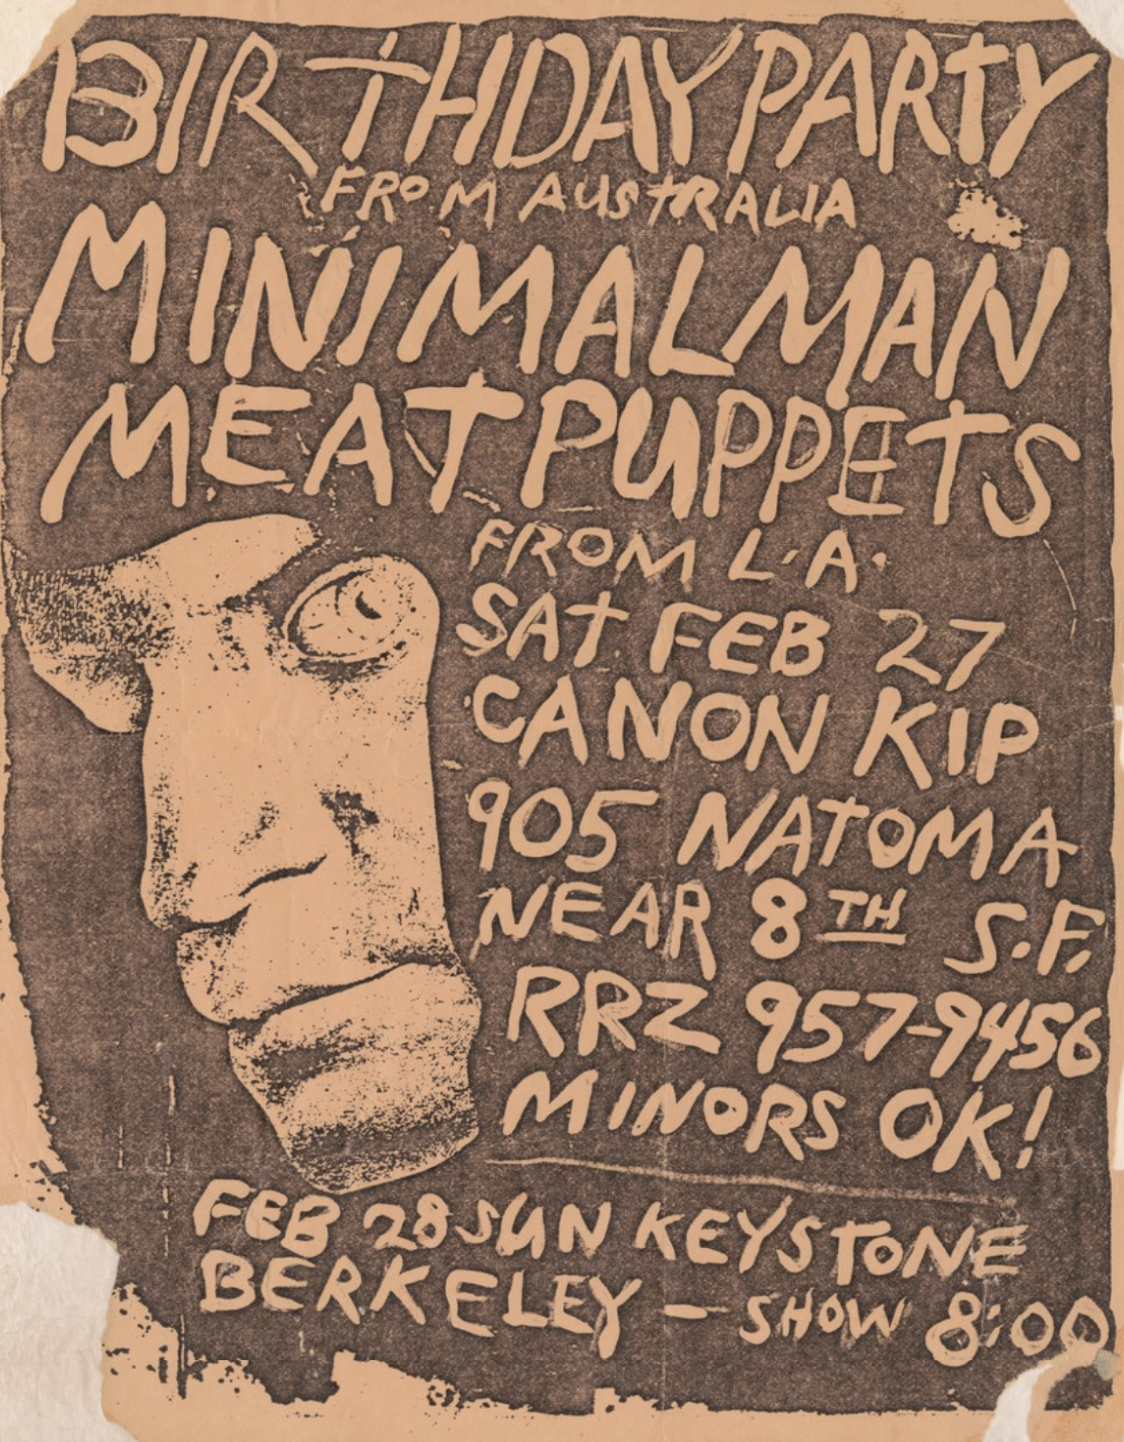 BIRTHDAY PARTY
FROM AUSTRALIA
MINIMAL MAN
MEAT PUPPETS
FROM L.A.
SAT FEB 27
CANON KIP
905 NATOMA
NEAR 8TH S.F.
RRZ 957-9456
MINORS OK!
FEB 28 SUN KEYSTONE
BERKELEY — SHOW 8:00